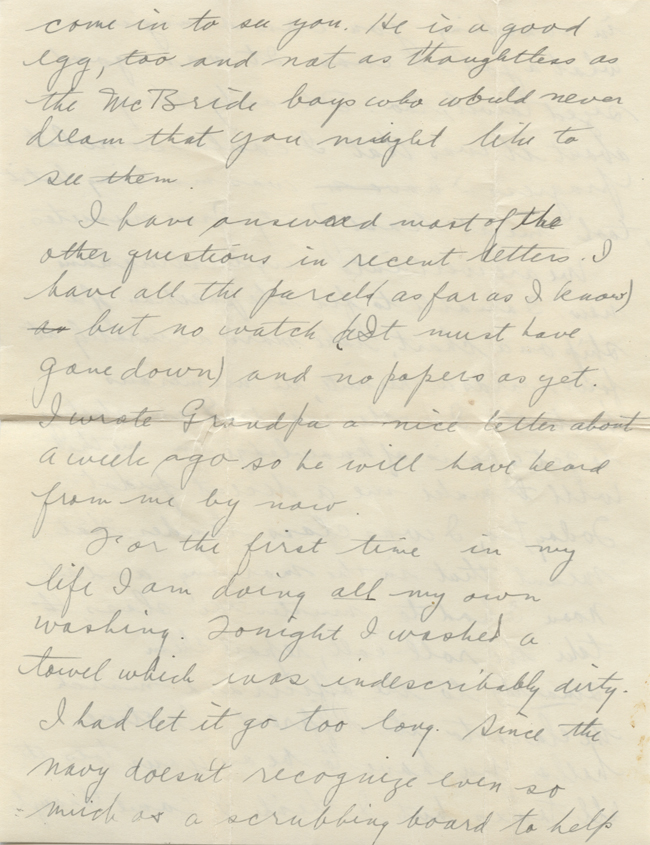 come in to see you. He is a good
egg, too and not as thoughtless as
the McBride boys who would never
dream that you might like to
see them.
I have answered most of the
other questions in recent letters. I
have all the parcels (as far as I know)
as but no watch (It must have
gone down) and no papers as yet.
I wrote Grandpa a nice letter about
a week ago so he will have heard
from me by now.
For the first time in my
life I am doing all my own
washing. Tonight I washed a
towel which was indescribably dirty.
I had let it go too long. Since the
navy doesn't recognize even so
much as a scrubbing board to help